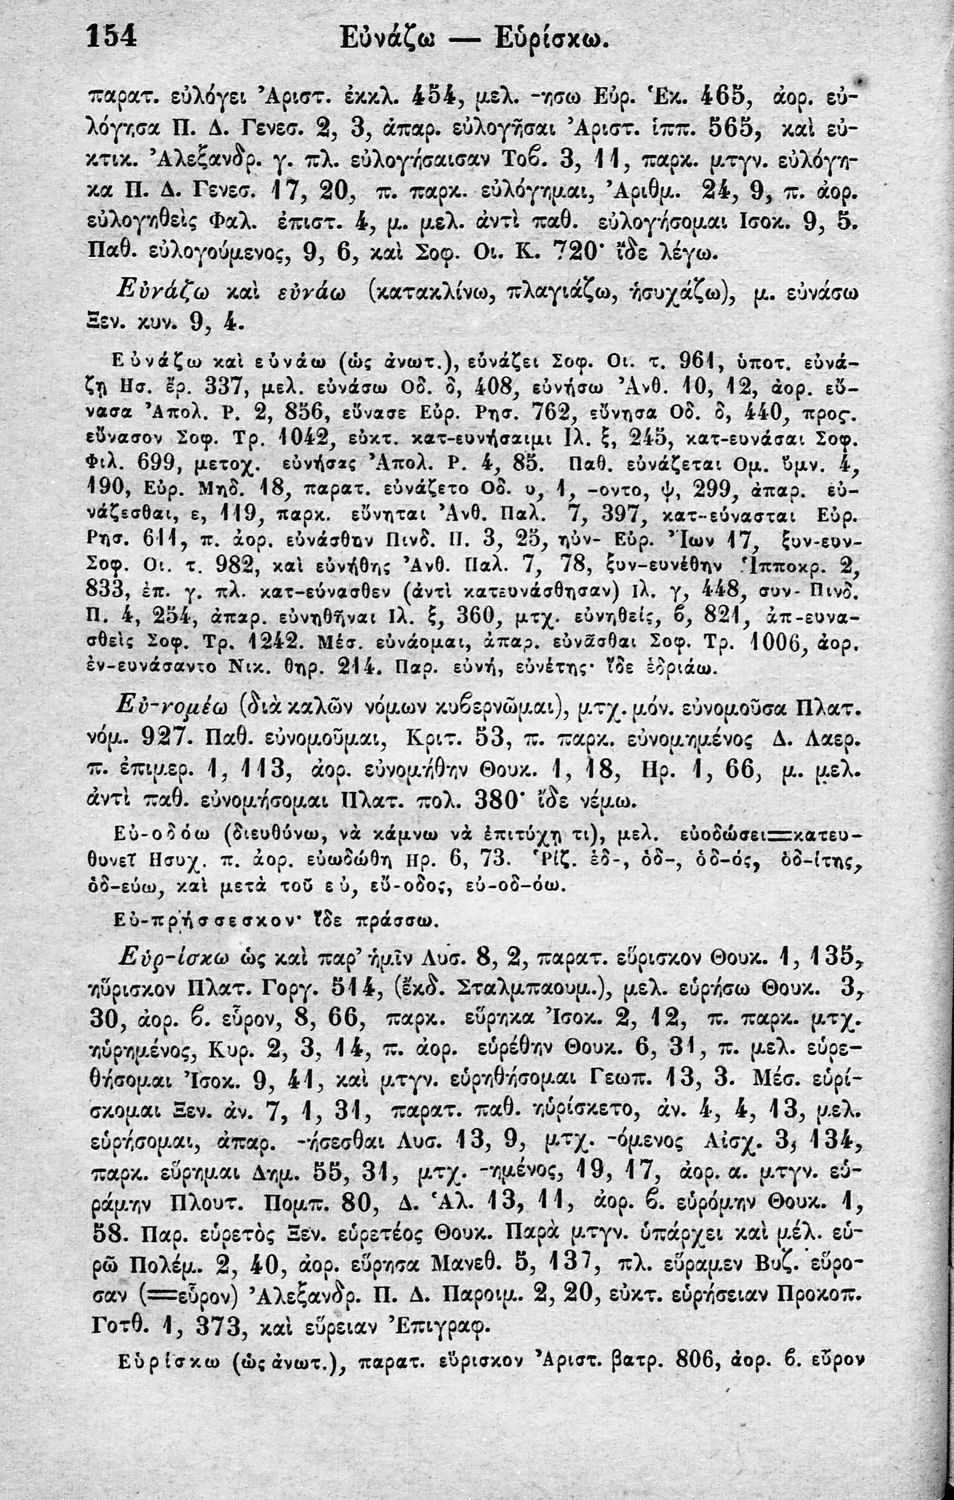 154 Εὐνάζω — Εὑρίσκω.
παρατ. εὐλόγει Ἀριστ. ἐκκλ. 454, μελ. -ησω Εὐρ. Ἑκ. 465, ἀορ. εὐ-
λόγησα Π. Δ. Γενεσ. 2, 3, ἀπαρ. εὐλογῆσαι Ἀριστ. ἱππ. 565, καὶ εὐ-
κτικ. Ἀλεξανδρ. γ. πλ. εὐλογήσαισαν Τοβ. 3, 11, παρκ. μτγν. εὐλόγη-
κα Π. Δ. Γενεσ. 17, 20, π. παρκ. εὐλόγημαι, Ἀριθμ. 24, 9, π. ἀορ.
εὐλογηθεὶς Φαλ. ἐπιστ. 4, μ. μελ. ἀντὶ παθ. εὐλογήσομαι Ισοκ. 9, 5.
Παθ. εὐλογούμενος, 9, 6, καὶ Σοφ. Οι. Κ. 720· ἴδε λέγω.
Εὐνάζω καὶ εὐνάω (κατακλίνω, πλαγιάζω, ἡσυχάζω), μ. εὐνάσω
Ξεν. κυν. 9, 4.
Εὐνάζω καὶ εὐνάω (ὡς ἀνωτ.), εὐνάζει Σοφ. Οι. τ. 961, ὑποτ. εὐνά-
ζῃ Ησ. ἔρ. 337, μελ. εὐνάσω Οδ. δ, 408, εὐνήσω Ἀνθ. 10, 12, ἀορ. εὔ-
νασα Ἀπολ. Ρ. 2, 856, εὔνασε Εὐρ. Ρησ. 762, εὔνησα Οδ. δ, 440, προς.
εὔνασον Σοφ. Τρ. 1042, εὐκτ. κατ-ευνήσαιμι Ιλ. ξ, 245, κατ-ευνάσαι Σοφ.
Φιλ. 699, μετοχ. εὐνήσας Ἀπολ. Ρ. 4, 85. Παθ. εὐνάζεται Ομ. ὕμν. 4,
190, Εὐρ. Μηδ. 18, παρατ. εὐνάζετο Οδ. υ, 1, -οντο, ψ, 299, ἀπαρ. εὐ-
νάζεσθαι, ε, 119, παρκ. εὔνηται Ἀνθ. Παλ. 7, 397, κατ-εύνασται Εὐρ.
Ρησ. 611, π. ἀορ. εὐνάσθην Πινδ. Π. 3, 25, ηὐν- Εὐρ. Ἴων 17, ξυν-ευν-
Σοφ. Οι. τ. 982, καὶ εὐνήθης Ἀνθ. Παλ. 7, 78, ξυν-ευνέθην Ἱπποκρ. 2,
833, ἐπ. γ. πλ. κατ-εύνασθεν (ἀντὶ κατευνάσθησαν) Ιλ. γ, 448, συν- Πινδ.
Π. 4, 254, ἀπαρ. εὐνηθῆναι Ιλ. ξ, 360, μτχ. εὐνηθείς, β, 821, ἀπ-ευνα-
σθεὶς Σοφ. Τρ. 1242. Μέσ. εὐνάομαι, ἀπαρ. εὐνᾶσθαι Σοφ. Τρ. 1006, ἀορ.
ἐν-ευνάσαντο Νικ. θηρ. 214. Παρ. εὐνή, εὐνέτης· ἴδε ἑδριάω.
Εὐ-νομέω (διὰ καλῶν νόμων κυβερνῶμαι), μτχ. μόν. εὐνομοῦσα Πλατ.
νόμ. 927. Παθ. εὐνομοῦμαι, Κριτ. 53, π. παρκ. εὐνομημένος Δ. Λαερ.
π. ἐπιμερ. 1, 113, ἀορ. εὐνομήθην Θουκ. 1, 18, Ηρ. 1, 66, μ. μελ.
ἀντὶ παθ. εὐνομήσομαι Πλατ. πολ. 380· ἴδε νέμω.
Εὐ-οδόω (διευθύνω, νὰ κάμνω νὰ ἐπιτύχῃ τι), μελ. εὐοδώσει=κατευ-
θυνεῖ Ησυχ. π. ἀορ. εὐωδώθη Ηρ. 6, 73. Ῥίζ. ἑδ-, ὁδ-, ὁδ-ός, ὁδ-ίτης,
ὁδ-εύω, καὶ μετὰ τοῦ εὐ, εὔ-οδος, εὐ-οδ-όω.
Εὐ-πρήσσεσκον· ἴδε πράσσω.
Εὑρ-ίσκω ὡς καὶ παρ’ ἡμῖν Λυσ. 8, 2, παρατ. εὕρισκον Θουκ. 1, 135,
ηὕρισκον Πλατ. Γοργ. 514, (ἔκδ. Σταλμπαουμ.), μελ. εὑρήσω Θουκ. 3,
30, ἀορ. β. εὗρον, 8, 66, παρκ. εὕρηκα Ἰσοκ. 2, 12, π. παρκ. μτχ.
ηὑρημένος, Κυρ. 2, 3, 14, π. ἀορ. εὑρέθην Θουκ. 6, 31, π. μελ. εὑρε-
θήσομαι Ἰσοκ. 9, 41, καὶ μτγν. εὑρηθήσομαι Γεωπ. 13, 3. Μέσ. εὑρί-
σκομαι Ξεν. ἀν. 7, 1, 31, παρατ. παθ. ηὑρίσκετο, ἀν. 4, 4, 13, μελ.
εὑρήσομαι, ἀπαρ. -ήσεσθαι Λυσ. 13, 9, μτχ. -όμενος Αἰσχ. 3, 134,
παρκ. εὕρημαι Δημ. 55, 31, μτχ. -ημένος, 19, 17, ἀορ. α. μτγν. εὑ-
ράμην Πλουτ. Πομπ. 80, Δ. Ἁλ. 13, 11, ἀορ. β. εὑρόμην Θουκ. 1,
58. Παρ. εὑρετὸς Ξεν. εὑρετέος Θουκ. Παρὰ μτγν. ὑπάρχει καὶ μέλ. εὑ-
ρῶ Πολέμ. 2, 40, ἀορ. εὕρησα Μανεθ. 5, 137, πλ. εὕραμεν Βυζ. εὕρο-
σαν (=εὗρον) Ἀλεξανδρ. Π. Δ. Παροιμ. 2, 20, εὐκτ. εὑρήσειαν Προκοπ.
Γοτθ. 1, 373, καὶ εὕρειαν Ἐπιγραφ.
Εὑρίσκω (ὡς ἀνωτ.), παρατ. εὕρισκον Ἀριστ. βατρ. 806, ἀορ. β. εὗρον